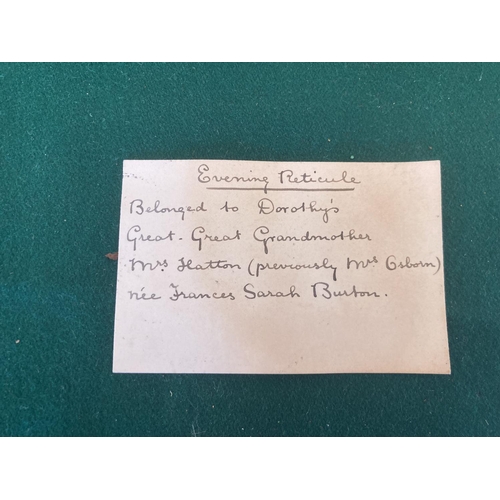 Evening Reticule
Belonged to Dorothy's
Great-Great Grandmother
Mrs Hatton (previously Mrs Osborn)
née Frances Sarah Burton.